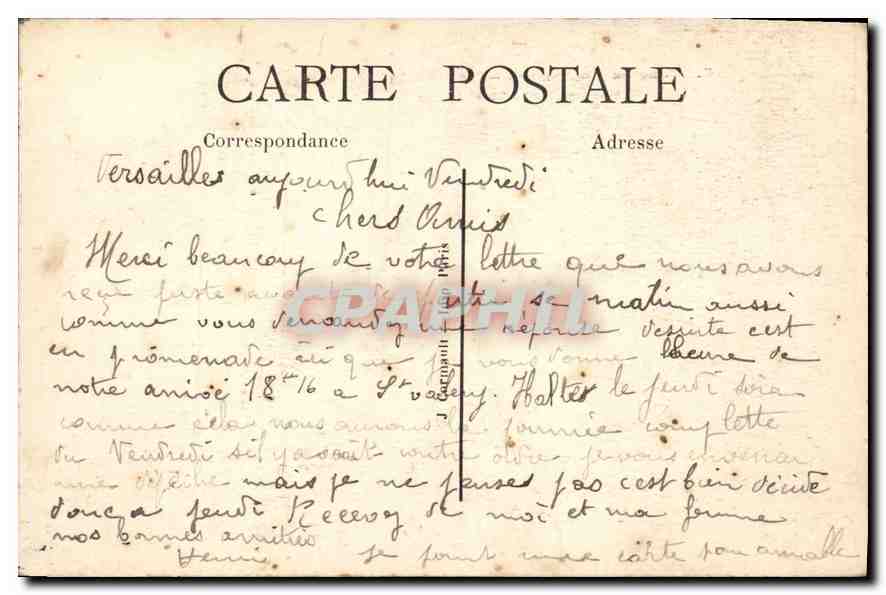 CARTE POSTALE
Correspondance
Adresse
Versailles aujourd hui Vendredi
chers Amis
Merci beaucoup de votre lettre que nous avons
reçu juste avant de se matin aussi
comme vous demandez une réponse c'est
en promenade que je vous donne lheure de
notre arrivé 18 16 a St valery. Haltes le jeudi soir
comme cela nous aurons la journée complette
du Vendredi sil y avait contre ordre je vous enverai
une dépêche mais je ne penses pas c'est bien décidé
donc a jeudi Recevez de moi et ma femme
nos bonnes amitiés
Henri je joint une carte pour
J Cormault Imp Paris
CPAPHIL